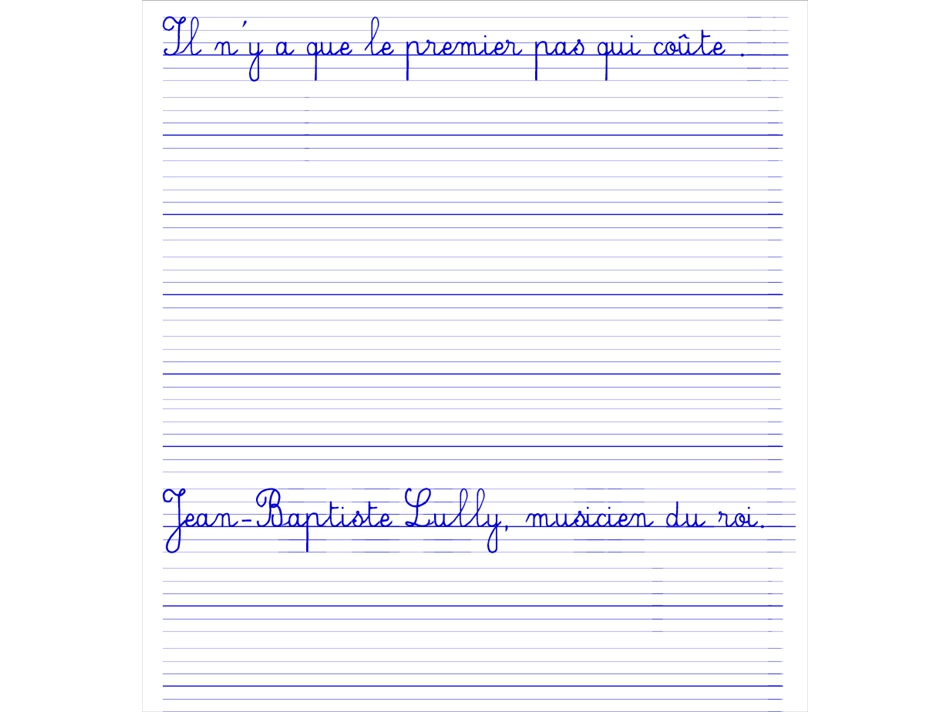 Il n'y a que le premier pas qui coûte .
Jean-Baptiste Lully, musicien du roi.